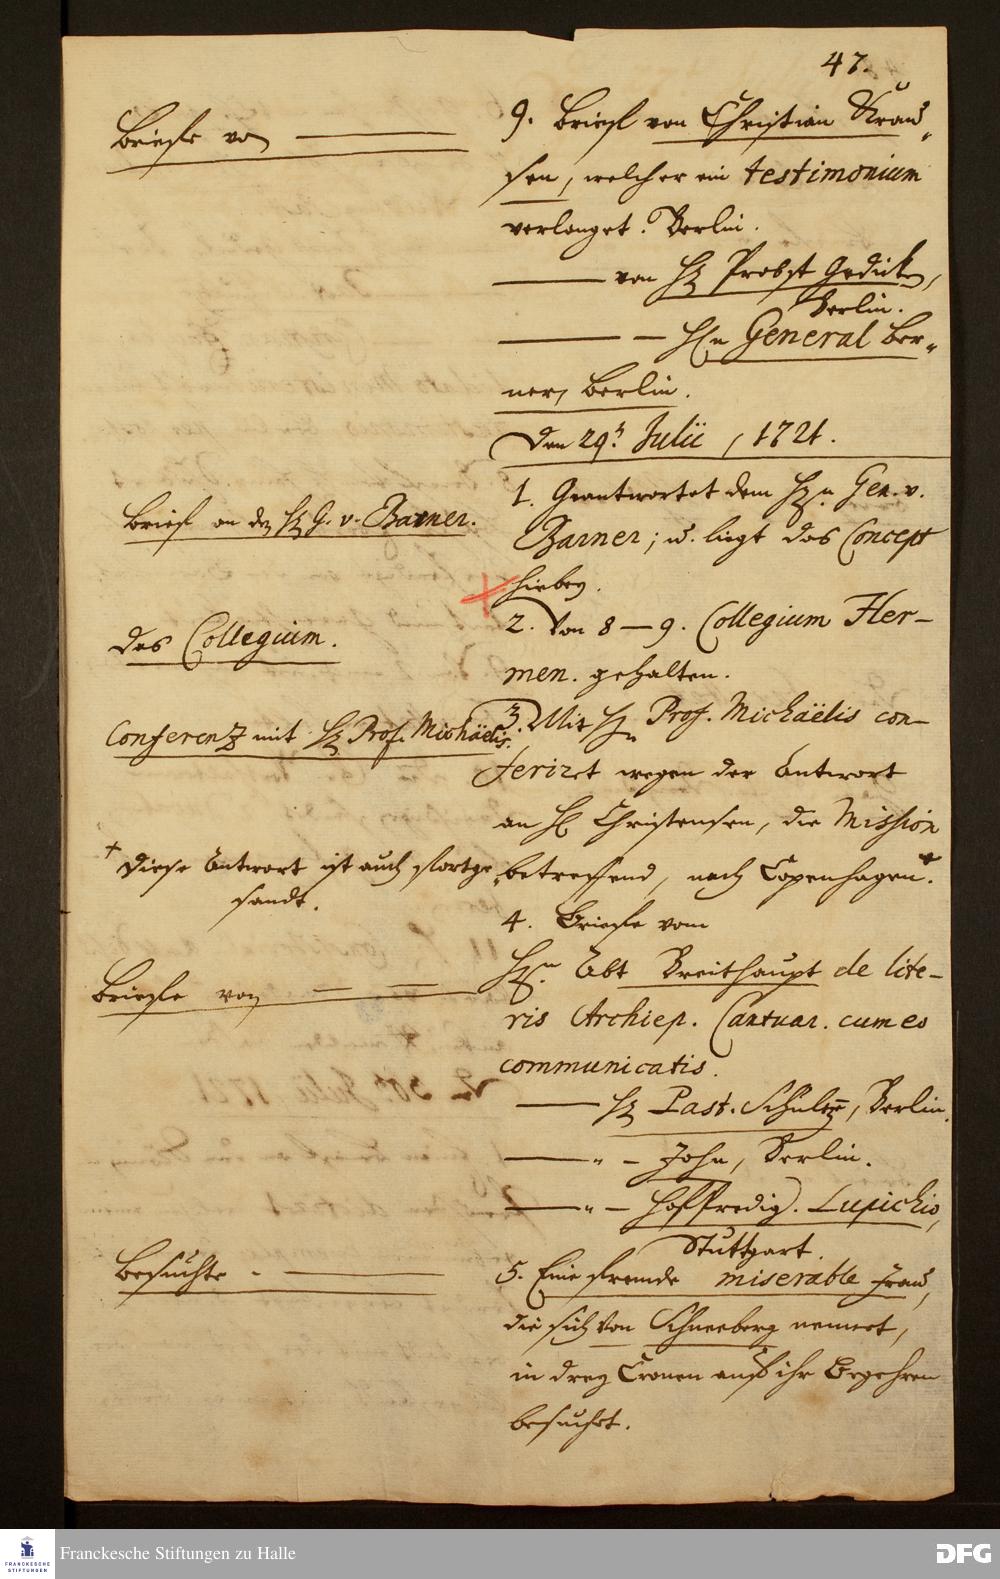 47.
Briefe von
9. Brief von Christian Krau-
sen, welcher ein testimonium
verlanget. Berlin.
von H. Probst Gedicken,
Berlin.
Hn General Ber-
ner, Berlin.
Den 29. Julii, 1721.
Brief an den H. G. v. Barner.
1. Geantwortet dem Hn. Gen. v.
Barner; u. liegt das Concept
hiebey.
Das Collegium.
2. Von 8–9. Collegium Her-
men. gehalten.
Conferentz mit H. Prof. Michaëlis.
3. Mit Hn Prof. Michaëlis con-
feriret wegen der Antwort
an H. Christensen, die Mission
betreffend, nach Copenhagen. +
+ Diese Antwort ist auch fortge-
sandt.
4. Briefe vom
Briefe von
Hn. Abt Breithaupt de lite-
ris Archiep. Cantuar. cum eo
communicatis.
H. Past. Schultz, Berlin.
" – John, Berlin.
" – Hoffpredig. Lupichio,
Stuttgart.
Besuchte.
5. Eine fremde miserable Frau,
die sich von Schneeberg nennet,
in drey Cronen auf ihr Begehren
besuchet.
Franckesche Stiftungen zu Halle
FRANCKESCHE
STIFTUNGEN
DFG